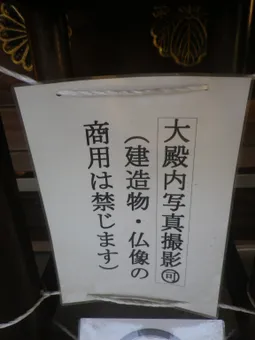 大殿内写真撮影㊢
(建造物・仏像の
商用は禁じます)